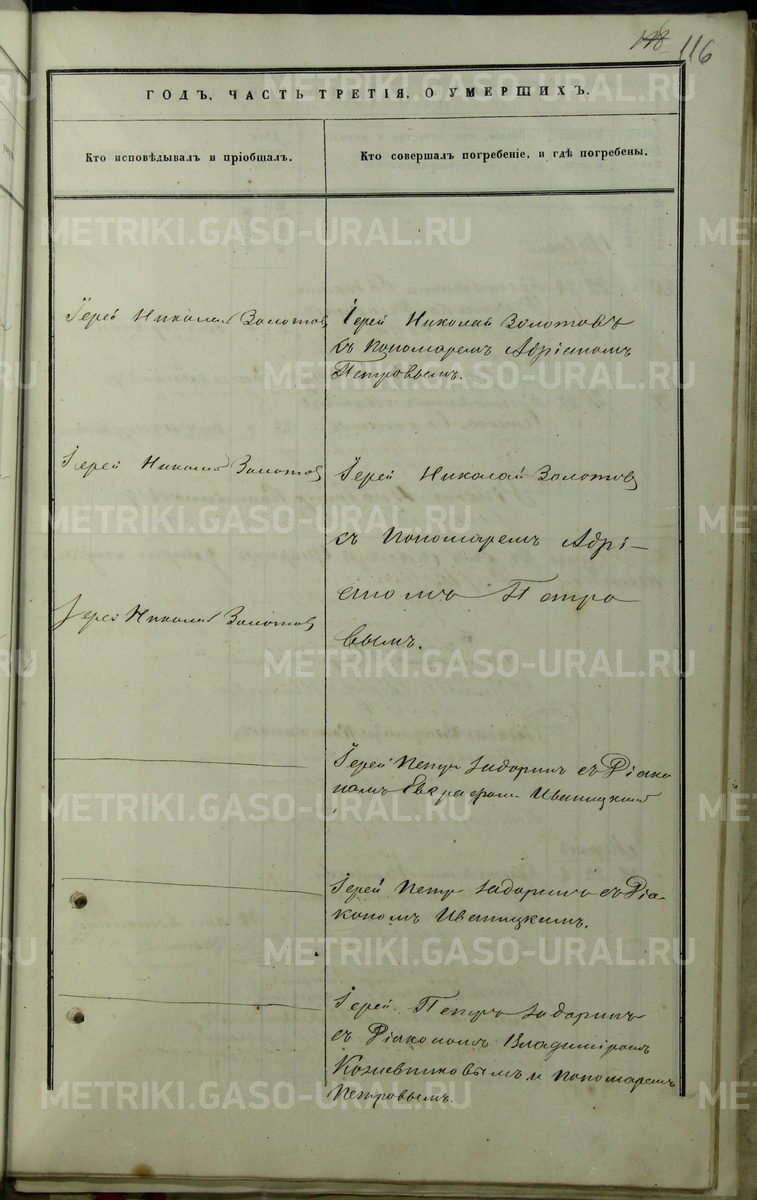 118 116
ГОДЪ, ЧАСТЬ ТРЕТІЯ, О УМЕРШИХЪ.
Кто исповѣдывалъ и пріобщалъ.
Кто совершалъ погребеніе, и гдѣ погребены.
Іерей Николай Золотов
Іерей Николай Золотовъ
съ Пономаремъ Адріаномъ
Петровымъ.
Іерей Николай Золотов
Іерей Николай Золотов
съ Пономаремъ Адрі-
аномъ Петро
вымъ.
Іерей Николай Золотов
Іерей Петръ Задоринъ съ Діако
номъ Ивановицкий
Іерей Петръ Задоринъ съ Діа-
кономъ
Іерей Петръ Задоринъ
съ Діакономъ Владиміромъ
Кожевниковымъ и пономаремъ
Петровымъ.
METRIKI.GASO-URAL.RU